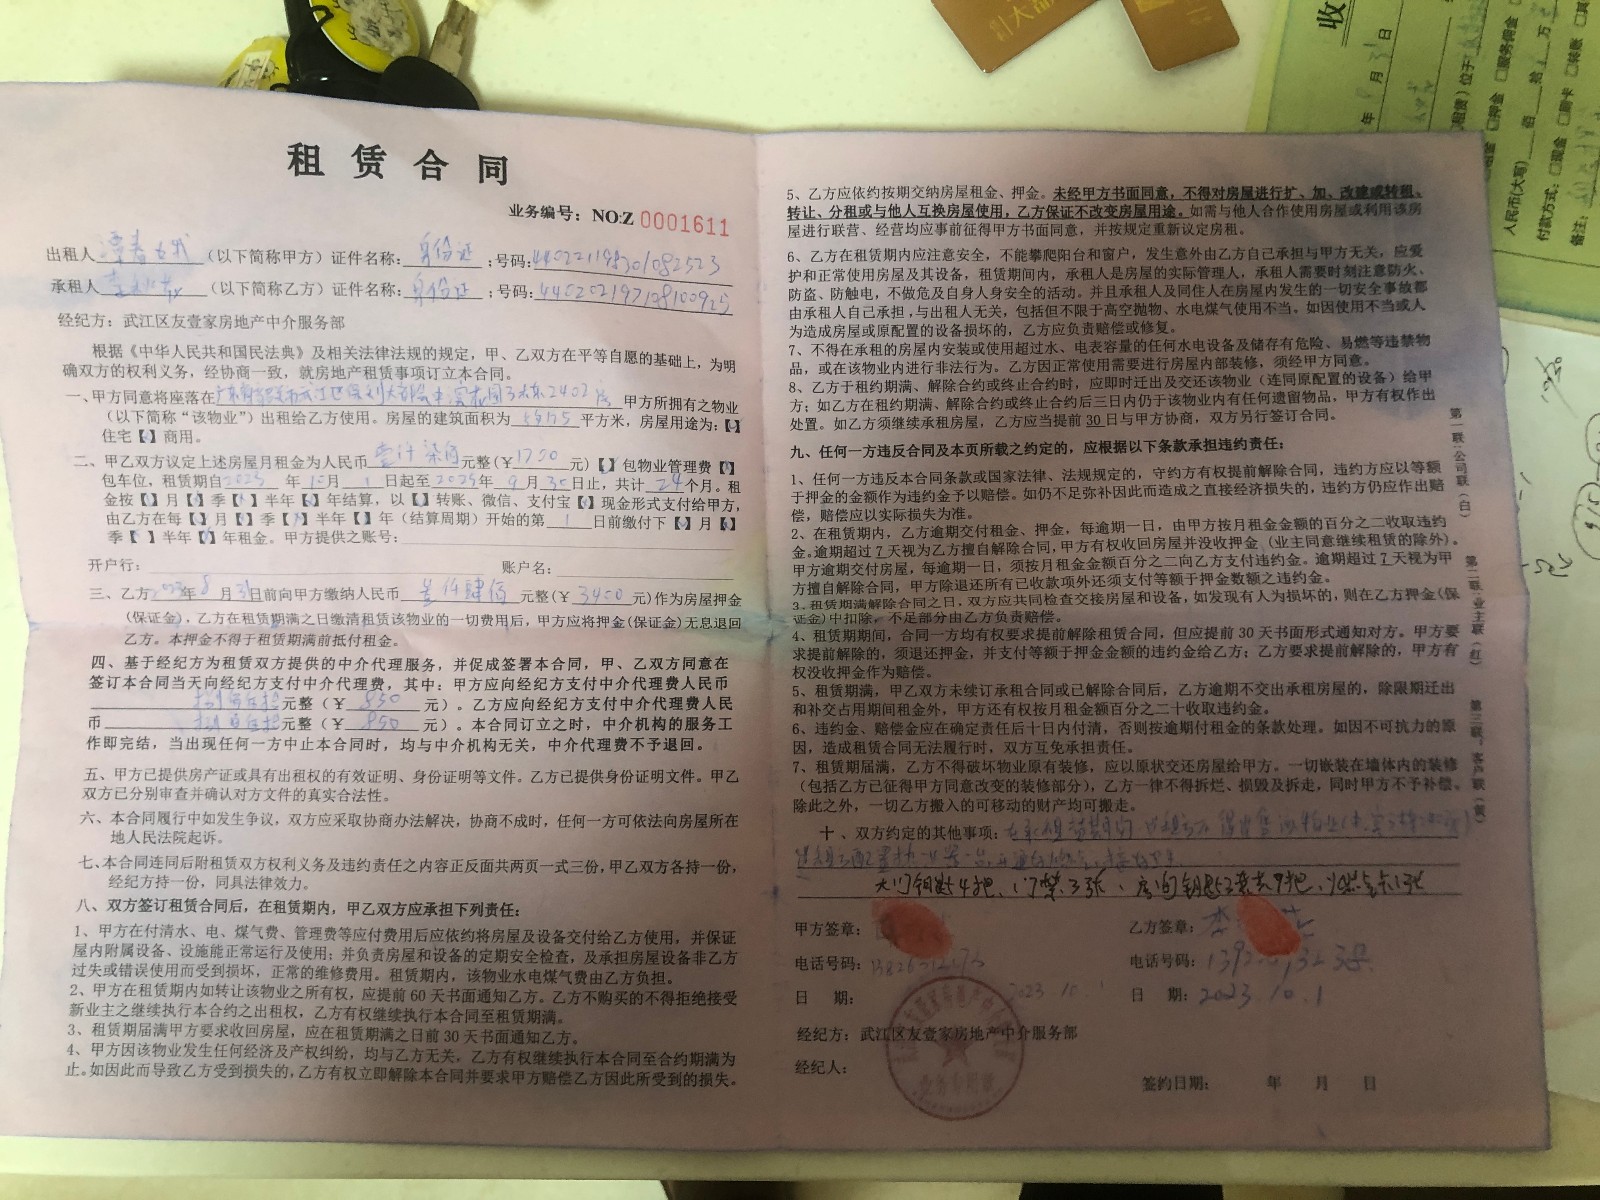 租赁合同
业务编号：NO:Z 0001611
出租人（以下简称甲方）证件名称：身份证；号码：
承租人（以下简称乙方）证件名称：身份证；号码：
经纪方：武江区友壹家房地产中介服务部
根据《中华人民共和国民法典》及相关法律法规的规定，甲、乙双方在平等自愿的基础上，为明
确双方的权利义务，经协商一致，就房地产租赁事项订立本合同。
一、甲方同意将座落在 3栋2402房 甲方所拥有之物业
（以下简称“该物业”）出租给乙方使用。房屋的建筑面积为 平方米，房屋用途为：【】
住宅【】商用。
二、甲乙双方议定上述房屋月租金为人民币 壹仟柒佰 元整（¥1700 元）【】包物业管理费【】
包车位，租赁期自2023年10月1日起至2025年9月30日止，共计24个月。租
金按【】月【】季【】半年【】年结算，以【】转账、微信、支付宝【】现金形式支付给甲方，
由乙方在每【】月【】季【】半年【】年（结算周期）开始的第1日前缴付下【】月【】
季【】半年【】年租金。甲方提供之账号：
开户行： 账户名：
三、乙方2023年8月31日前向甲方缴纳人民币 叁仟肆佰 元整（¥3400元）作为房屋押金
（保证金），乙方在租赁期满之日缴清租赁该物业的一切费用后，甲方应将押金（保证金）无息退回
乙方。本押金不得于租赁期满前抵付租金。
四、基于经纪方为租赁双方提供的中介代理服务，并促成签署本合同，甲、乙双方同意在
签订本合同当天向经纪方支付中介代理费，其中：甲方应向经纪方支付中介代理费人民币
捌佰伍拾元整（¥850元）。乙方应向经纪方支付中介代理费人民
币 捌佰伍拾元整（¥850元）。本合同订立之时，中介机构的服务工
作即完结，当出现任何一方中止本合同时，均与中介机构无关，中介代理费不予退回。
五、甲方已提供房产证或具有出租权的有效证明、身份证明等文件。乙方已提供身份证明文件。甲乙
双方已分别审查并确认对方文件的真实合法性。
六、本合同履行中如发生争议，双方应采取协商办法解决，协商不成时，任何一方可依法向房屋所在
地人民法院起诉。
七、本合同连同后附租赁双方权利义务及违约责任之内容正反面共两页一式三份，甲乙双方各持一份，
经纪方持一份，同具法律效力。
八、双方签订租赁合同后，在租赁期内，甲乙双方应承担下列责任：
1、甲方在付清水、电、煤气费、管理费等应付费用后应依约将房屋及设备交付给乙方使用，并保证
屋内附属设备、设施能正常运行及使用；并负责房屋和设备的定期安全检查，及承担房屋设备非乙方
过失或错误使用而受到损坏，正常的维修费用。租赁期内，该物业水电煤气费由乙方负担。
2、甲方在租赁期内如转让该物业之所有权，应提前60天书面通知乙方。乙方不购买的不得拒绝接受
新业主之继续执行本合约之出租权，乙方有权继续执行本合同至租赁期满。
3、租赁期届满甲方要求收回房屋，应在租赁期满之日前30天书面通知乙方。
4、甲方因该物业发生任何经济及产权纠纷，均与乙方无关，乙方有权继续执行本合同至合约期满为
止。如因此而导致乙方受到损失的，乙方有权立即解除本合同并要求甲方赔偿乙方因此所受到的损失。
5、乙方应依约按期交纳房屋租金、押金。未经甲方书面同意，不得对房屋进行扩、加、改建或转租、
转让、分租或与他人互换房屋使用，乙方保证不改变房屋用途。如需与他人合作使用房屋或利用该房
屋进行联营、经营均应事前征得甲方书面同意，并按规定重新议定房租。
6、乙方在租赁期内应注意安全，不能攀爬阳台和窗户，发生意外由乙方自己承担与甲方无关，应爱
护和正常使用房屋及其设备，租赁期间内，承租人是房屋的实际管理人，承租人需要时刻注意防火、
防盗、防触电，不做危及自身人身安全的活动。并且承租人及同住人在房屋内发生的一切安全事故都
由承租人自己承担，与出租人无关，包括但不限于高空抛物、水电煤气使用不当。如因使用不当或人
为造成房屋或原配置的设备损坏的，乙方应负责赔偿或修复。
7、不得在承租的房屋内安装或使用超过水、电表容量的任何水电设备及储存有危险、易燃等违禁物
品，或在该物业内进行非法行为。乙方因正常使用需要进行房屋内部装修，须经甲方同意。
8、乙方于租约期满、解除合约或终止合约时，应即时迁出及交还该物业（连同原配置的设备）给甲
方；如乙方在租约期满、解除合约或终止合约后三日内仍于该物业内有任何遗留物品，甲方有权作出
处置。如乙方须继续承租房屋，乙方应当提前30日与甲方协商，双方另行签订合同。
九、任何一方违反合同及本页所载之约定的，应根据以下条款承担违约责任：
1、任何一方违反本合同条款或国家法律、法规规定的，守约方有权提前解除合同，违约方应以等额
于押金的金额作为违约金予以赔偿。如仍不足弥补因此而造成之直接经济损失的，违约方仍应作出赔
偿，赔偿应以实际损失为准。
2、在租赁期内，乙方逾期交付租金、押金，每逾期一日，由甲方按月租金金额的百分之二收取违约
金。逾期超过7天视为乙方擅自解除合同，甲方有权收回房屋并没收押金（业主同意继续租赁的除外）。
甲方逾期交付房屋，每逾期一日，须按月租金金额百分之二向乙方支付违约金。逾期超过7天视为甲
方擅自解除合同，甲方除退还所有已收款项外还须支付等额于押金数额之违约金。
3、租赁期满解除合同之日，双方应共同检查交接房屋和设备，如发现有人为损坏的，则在乙方押金（保
证金）中扣除，不足部分由乙方负责赔偿。
4、租赁期期间，合同一方均有权要求提前解除租赁合同，但应提前30天书面形式通知对方。甲方要
求提前解除的，须退还押金，并支付等额于押金金额的违约金给乙方；乙方要求提前解除的，甲方有
权没收押金作为赔偿。
5、租赁期满，甲乙双方未续订承租合同或已解除合同后，乙方逾期不交出承租房屋的，除限期迁出
和补交占用期间租金外，甲方还有权按月租金额百分之二十收取违约金。
6、违约金、赔偿金应在确定责任后十日内付清，否则按逾期付租金的条款处理。如因不可抗力的原
因，造成租赁合同无法履行时，双方互免承担责任。
7、租赁期届满，乙方不得破坏物业原有装修，应以原状交还房屋给甲方。一切嵌装在墙体内的装修
（包括乙方已征得甲方同意改变的装修部分），乙方一律不得拆烂、损毁及拆走，同时甲方不予补偿。
除此之外，一切乙方搬入的可移动的财产均可搬走。
十、双方约定的其他事项：
大门钥匙4把、门禁3张、房间钥匙 9把
甲方签章： 乙方签章：
电话号码： 电话号码：
日 期：2023 10.1 日 期：2023.10.1
经纪方：武江区友壹家房地产中介服务部
经纪人：
签约日期： 年 月 日
第一联：公司联（白）
第二联：业主联（红）
第三联：客户联（黄）
收
人民币（大写） 佰 拾 万
付款方式：□现金 □刷卡 □转账
备注：